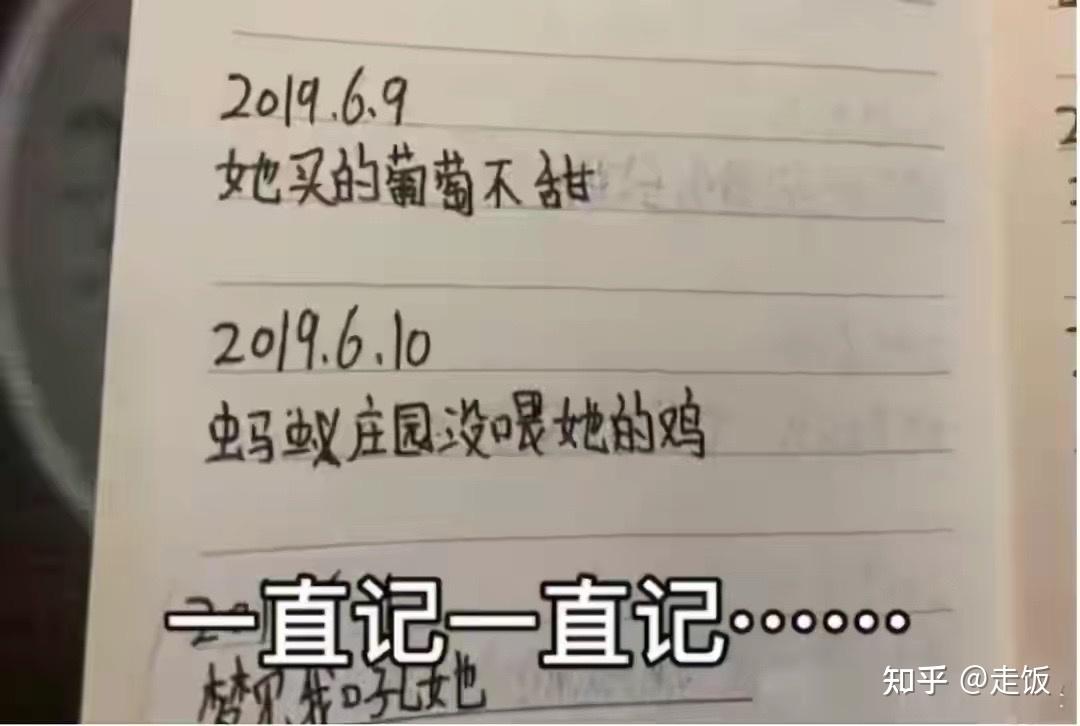 2019.6.9
她买的葡萄不甜
2019.6.10
蚂蚁庄园没喂她的鸡
一直记一直记……
梦见我吼她
知乎 @走饭